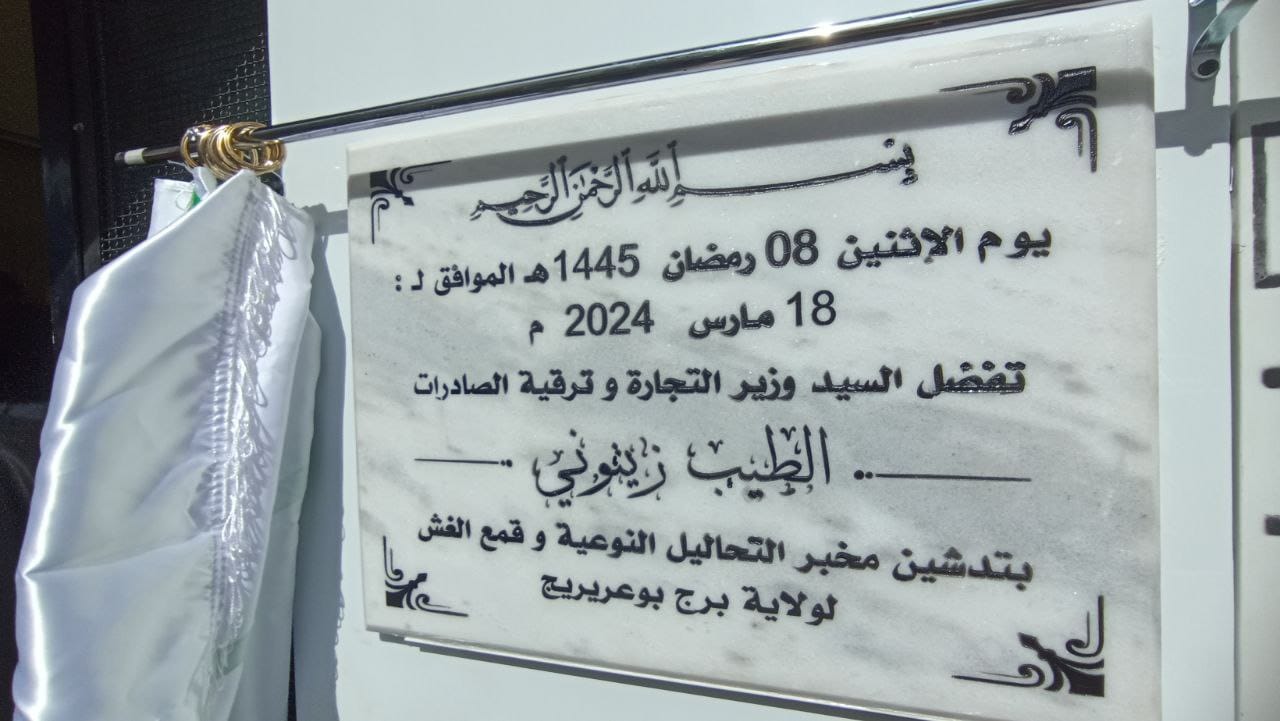 بِسْمِ ٱللَّهِ ٱلرَّحْمَٰنِ ٱلرَّحِيمِ
يوم الإثنين 08 رمضان 1445هـ الموافق لـ :
18 مارس 2024 م
تفضل السيد وزير التجارة و ترقية الصادرات
الطيب زيتوني
بتدشين مخبر التحاليل النوعية و قمع الغش
لولاية برج بوعريريج